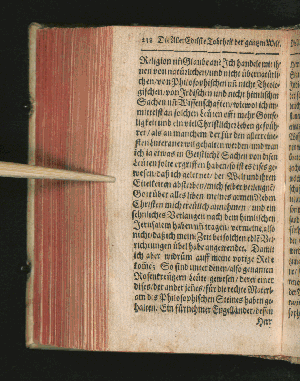 218 Die Aller Edelste Tohrheit der gantzen Welt.
Religion uñ Glauben: Ich handele mit ih-
nen von natürlichen / und nicht übernatürli-
chen / von Philosophischen uñ nicht Theolo-
gischen / von Irdischen und nicht himlischen
Sachen uñ Wissenschafften / wiewol ich
mittelst an solchen Leuten offt mehr Gottse-
ligkeit und ein viel Christlicher Leben gespüh-
ret / als an manchem der für den
sten Lutheraner wil gehalten werden und wan
ich ja etwas in Geistliche Sachen von disen
Leuten solte ergriffen haben / so ist es dises ge-
wesen / daß ich gelernet / der Welt und ihren
Eitelkeiten absterben / mich selbst verleugnē /
Gott über alles lieben / meines armen Neben
Christen mich treulich annehmen / und ein
sehnliches Verlangen nach dem himlischen
Jerusalem haben uñ tragen / vermeine also
nicht / daß ich meine Zeit bei solchen edlē Ver-
richtungen übel habe angewendet. Damit
ich aber widrüm auff meine vorige Rede
komme: So sind unter denen / also genanten
Rosenkreützern Leute gewesen / derer einer
dises / der ander jenes / für die rechte Materi-
am des Philosophischen Steines haben ge-
halten / Ein fürnehmer Engelländer / dessen
Herr